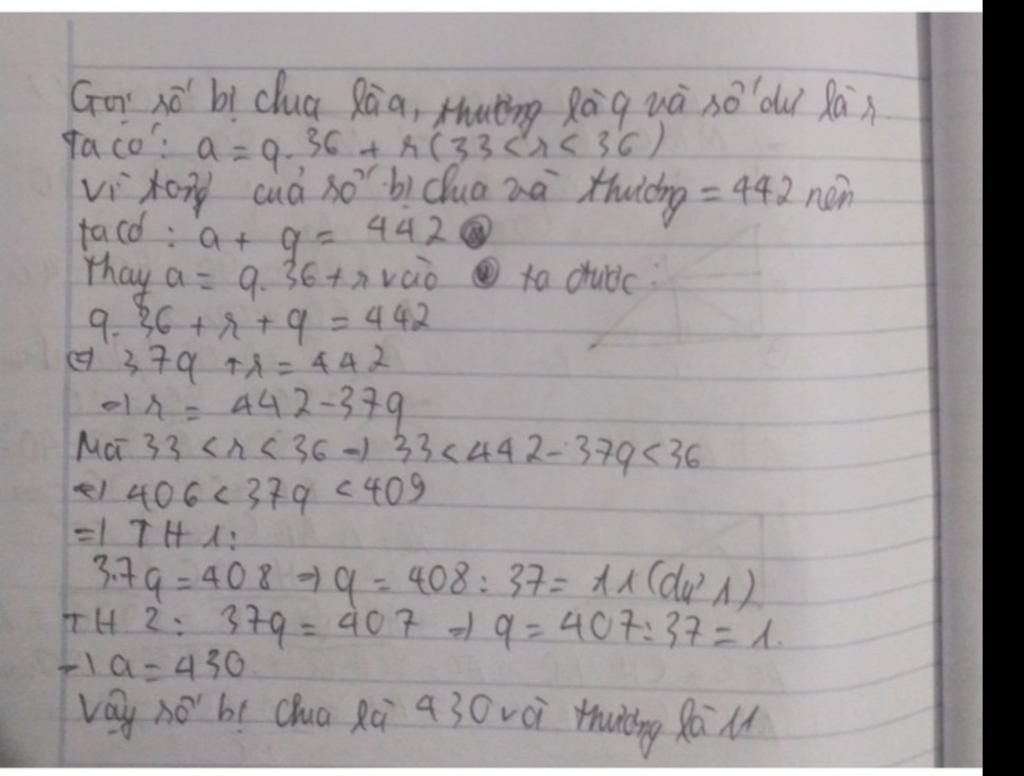 Gọi số bị chia là a, thương là q và số dư là r.
Ta có: a = q.36 + r (33 < r < 36)
Vì tổng của số bị chia và thương = 442 nên
ta có: a + q = 442
Thay a = q.36 + r vào ta được:
q.36 + r + q = 442
⇔ 37q + r = 442
⇒ r = 442 - 37q
Mà 33 < r < 36 ⇒ 33 < 442 - 37q < 36
⇔ 406 < 37q < 409
⇒ TH1:
37q = 408 ⇒ q = 408 : 37 = 11 (dư 1)
TH2: 37q = 407 ⇒ q = 407 : 37 = 1.
⇒ a = 430
Vậy số bị chia là 430 và thương là 11